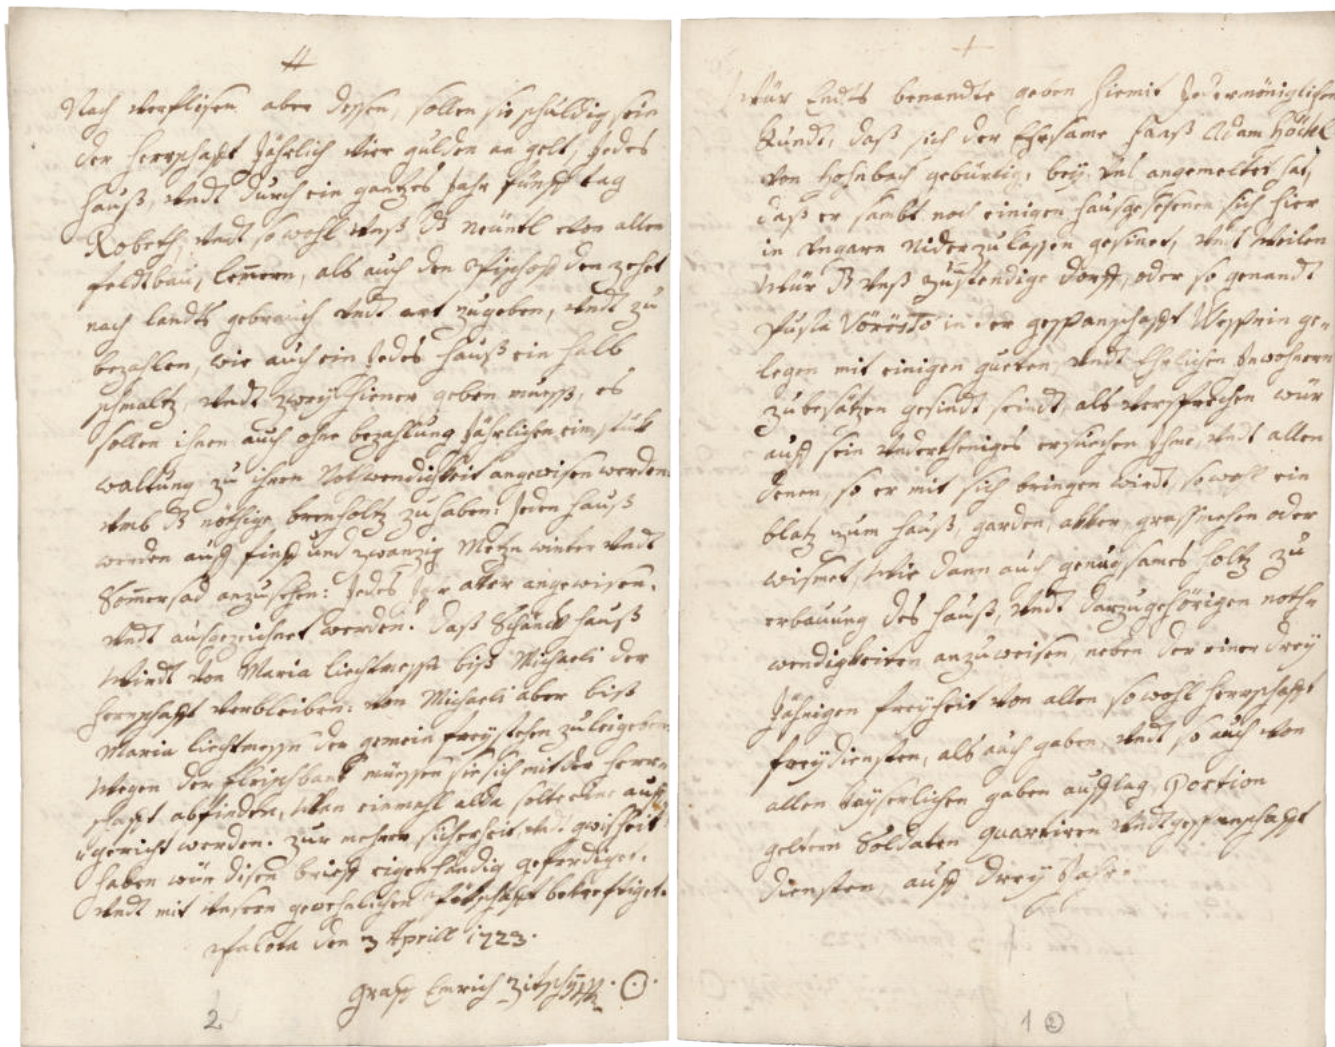 Nach verflisen aber dessen, sollen sie schuldig sein
der herrschafft Jährlich vier gulden an gelt, Jedes
hauß, vndt durch ein gantzes Jahr fünff tag
Robeth, vndt so wohl vnß dß neüntl von allen
feldtbau, lemern, als auch den Bischoff den zehet
nach landts gebrauch vndt art zugeben, vndt zu
bezahlen, wie auch ein Jedes hauß ein halb
schmaltz, vndt zwey hiener geben mueß, es
sollen ihnen auch ohne bezahlung Jährlichen ein stuck
waltung zu ihren Nothwendigkeit angewisen werden
vmb dß nöthige brenholtz zu haben: Jeden hauß
werden auff finff und zwanzig Metzn winter vndt
Sommersad anzusehen: Jedes Jar aker angewisen.
vndt ausgezeichnet werden. daß Schänckhauß
Wirdt von Maria liechtmessn biß Michaeli der
herrschafft verbleiben: von Michaeli aber biß
Maria liechtmessn der gemein freystehen zu leigeben.
Wegen der fleischbank müessen sie sich mit der herr-
schafft abfinden, Wan einmahl alda solte eine auff
gericht werden. zur mehrer sicherheit vndt gwißheit
haben wür disen brieff eigenhändig geferdiget.
vndt mit vnsern gewehnlichen Petschafft bekrefftiget.
Palota den 3 Aprill 1723.
Graff Emrich Zitschy
2
Wür Endts benandte geben hiemit Jedermäniglichen
Kundt, daß sich der Ehrsame Haaß Adam Höchl
von hohnbach gebürtig, bey vns angemeltet hat,
daß er sambt noch einigen hausgesessenen sich hier
in Vngarn niderzulassen gesinet, vnd weilen
Wür dß vnß zustendige dorff, oder so genandt
Pusta Vörösto in der gespanschafft Wesprin ge-
legen mit einigen gueten, vndt Ehrlichen Inwohnern
zubesätzen gesindt seindt, als versprechen wür
auff sein vndertheniges ersuechen Ihme, vndt allen
denen, so er mit sich bringen wirdt, sowohl ein
blatz zum hauß, garden, akker, grassmehen oder
wismet, Wie dann auch genuegsames holtz zu
erbauung des hauß, vndt darzugehörigen noth-
wendigkeiten anzuweisen, neben der einer drey
Jährigen freyheit von allen sowohl herrschafft
freydiensten, als auch gaben, vndt so auch von
allen Kayserlichen gaben aufflag, Portion
geltern Soldaten quartiren vndt gespanschafft
diensten, auff drey Jahr.
1 2